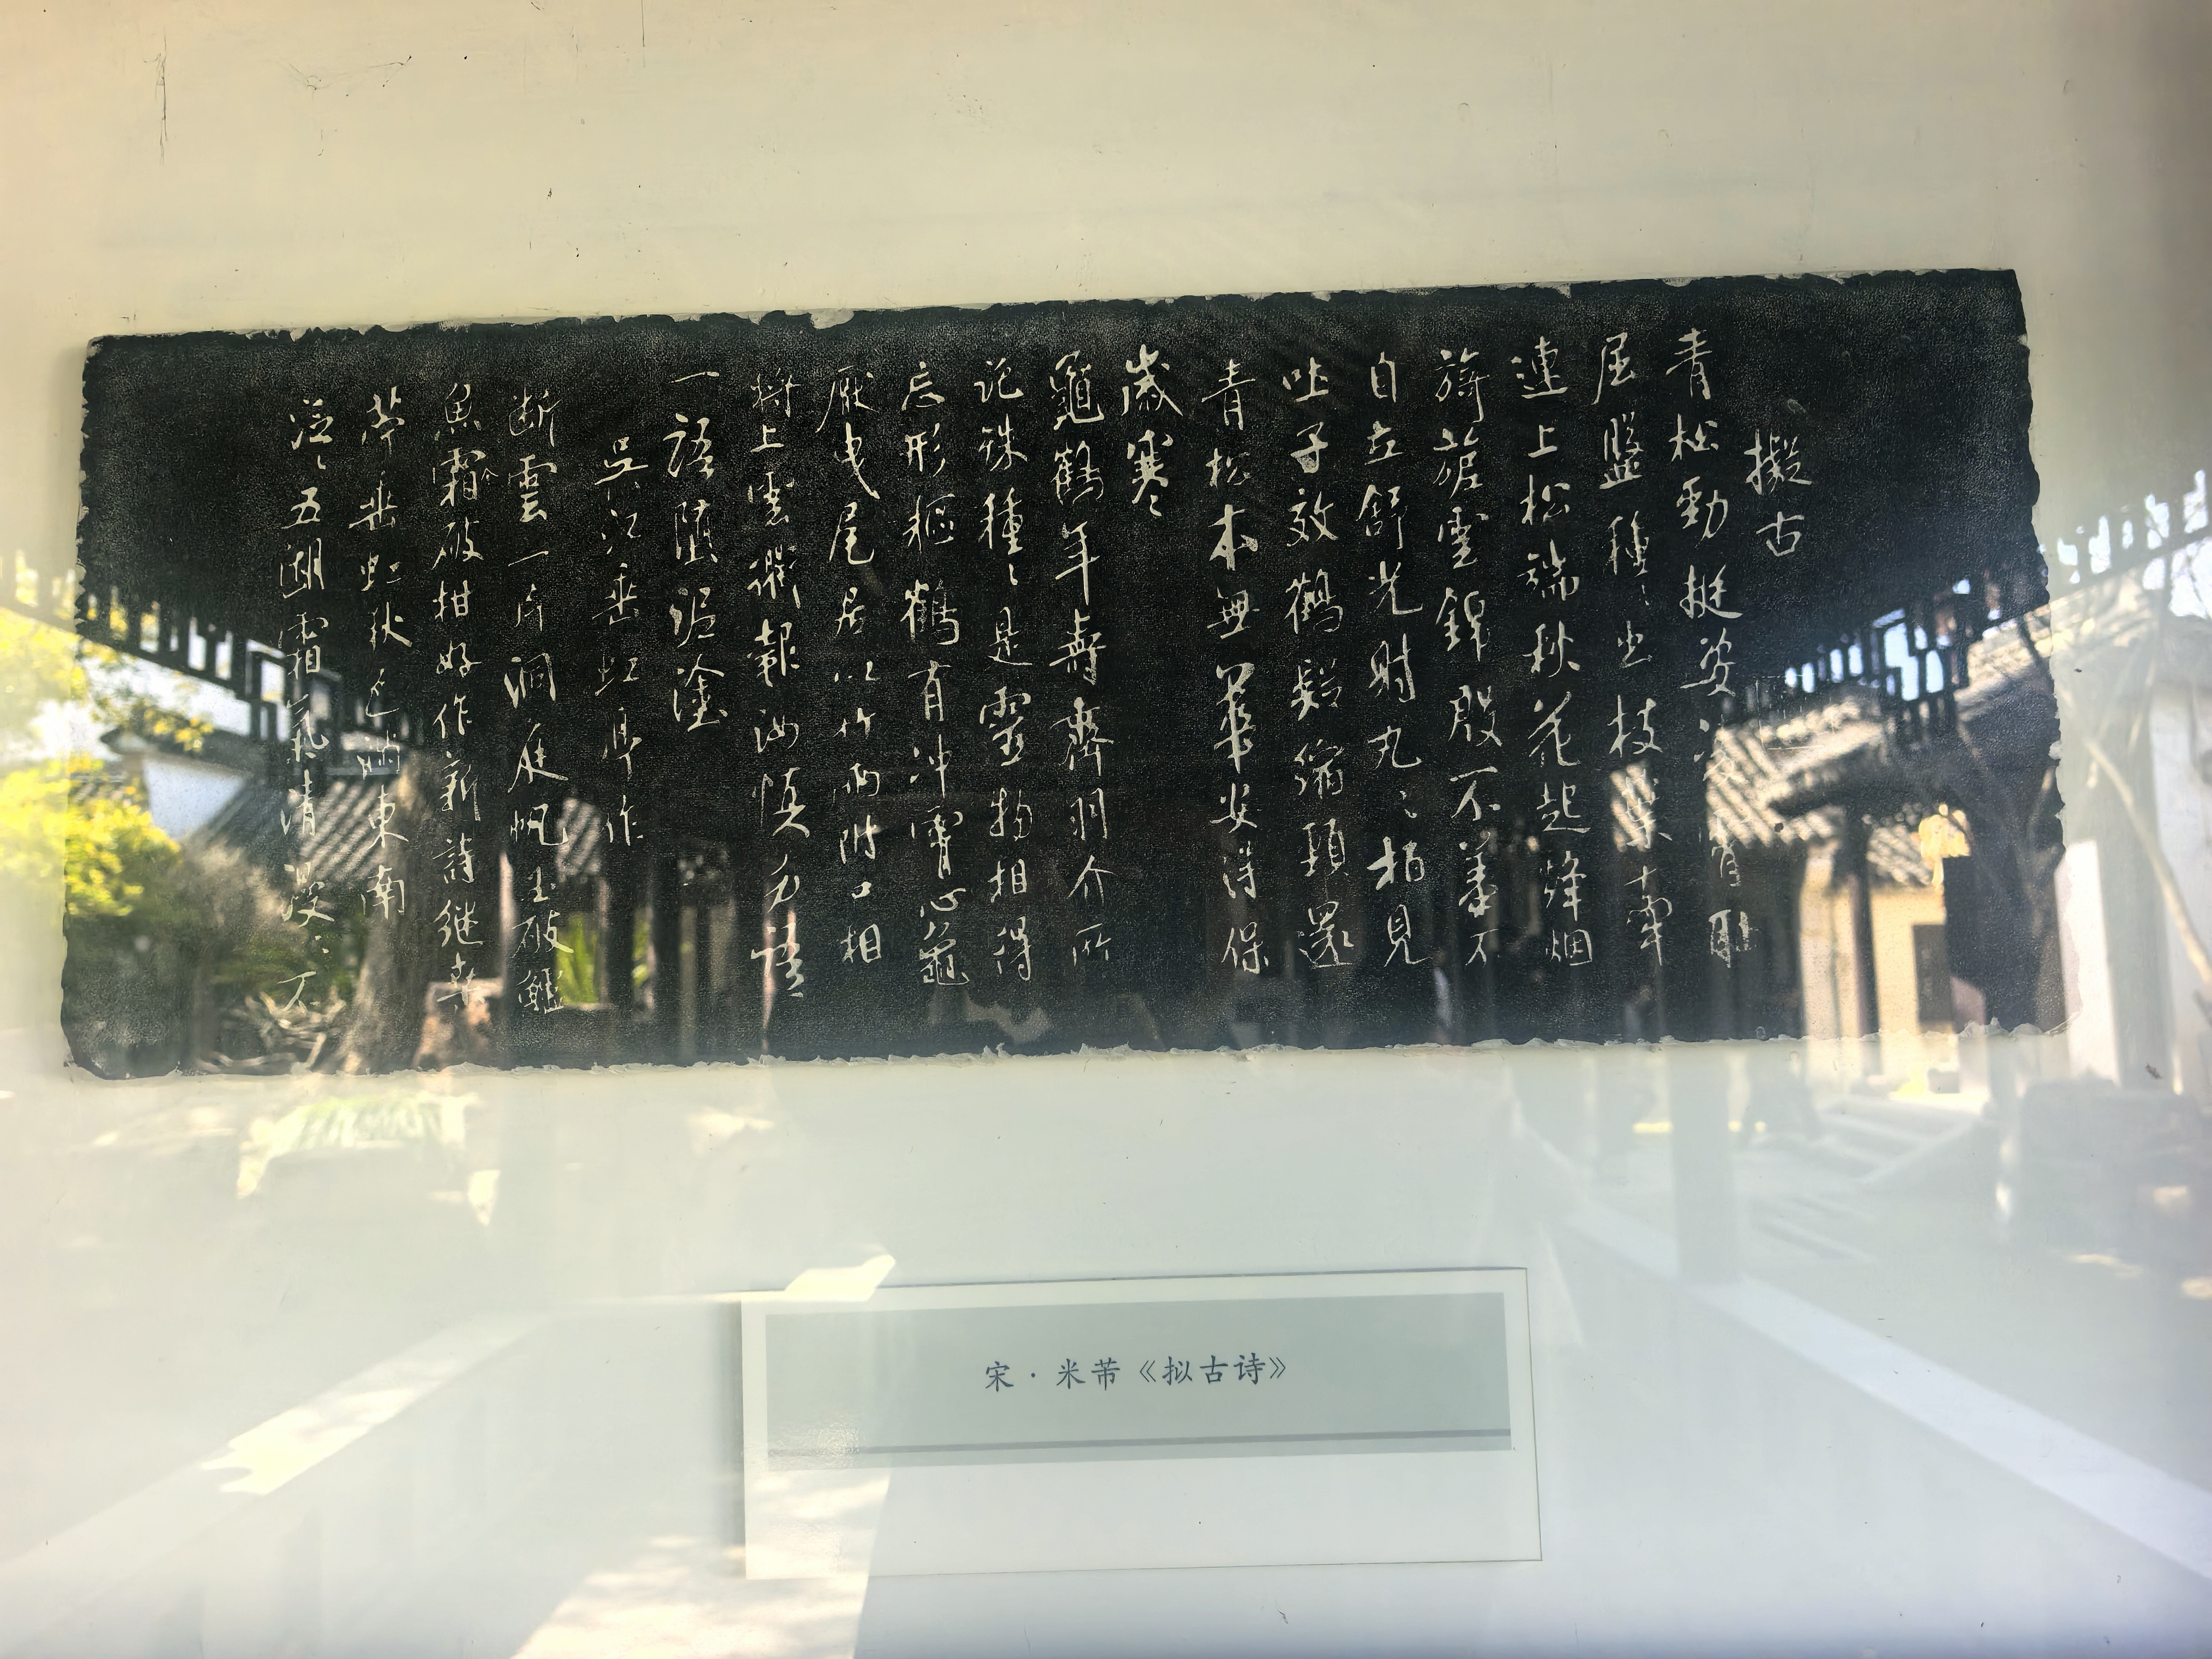 擬古
青松勁挺姿凌霄耻
屈盤種々出枝葉牽
連上松端秋花起烽烟
旖旎雲錦殷不羞不
自立舒光射丸々栢見
吐子效鶴疑縮頸還
青松本無華安得保
歳寒々
龜鶴年壽齊羽介所
託殊種々是靈物相得
忘形軀鶴有冲霄心龜
厭曳尾居以竹兩附口相
將上雲衢報汝慎勿語
一語墮泥塗
吳江垂虹亭作
断雲一片洞庭帆玉破鱸
魚霜破柑好作新詩繼桑
苧垂虹秋色滿東南
泛々五湖霜氣清漫々不
宋·米芾《拟古诗》